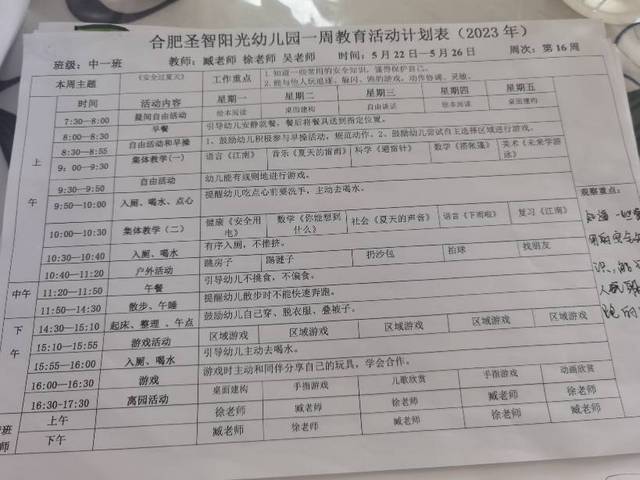 合肥圣智阳光幼儿园一周教育活动计划表（2023 年）
班级：中一班 教师：臧老师 徐老师 吴老师 时间：5 月 22 日—5 月 26 日 周次：第 16 周
本周主题 《安全过夏天》 工作重点 1. 知道一些常用的安全知识，懂得保护自己。
2. 能与他人玩追逐、躲闪、跑的游戏，动作协调、灵敏。
时间 活动内容 星期一 星期二 星期三 星期四 星期五
7:30—8:00 晨间自由活动 绘本阅读 桌面建构 自由谈话 绘本阅读 桌面建构
8:00—8:30 早餐 引导幼儿安静就餐，餐后将餐具送到指定位置。
8:30—8:55 自由活动和早操 1、鼓励幼儿积极参与早操活动，规范动作。2、鼓励幼儿尝试自主选择区域进行游戏。
9：00—9:30 集体教学（一） 语言《江南》 音乐《夏天的雷雨》 科学《避雷针》 数学《搭帐篷》 美术《未来学游泳》
9:30—9:50 自由活动 幼儿能有规则地进行游戏。
9:50—10:00 入厕、喝水、点心 提醒幼儿吃点心前要洗手，主动去喝水。
10:00—10:30 集体教学（二） 健康《安全用电》 数学《你能想到什么》 社会《夏天的声音》 语言《下雨啦》 复习《江南》
10:30—10:40 入厕、喝水 有序入厕，不推挤。
10:40—11:20 户外活动 跳房子 踢毽子 扔沙包 拍球 找朋友
11:20—11:50 午餐 引导幼儿不挑食、不偏食。
11:50—14:30 散步、午睡 提醒幼儿散步时不能快速奔跑。
14:30—15:10 起床、整理、午点 鼓励幼儿自己穿、脱衣服、叠被子。
15:10—15:55 游戏活动 区域游戏 区域游戏 区域游戏 区域游戏 区域游戏
15:55—16:00 入厕、喝水 引导幼儿主动去喝水。
16:00—16:30 游戏 游戏时主动和同伴分享自己的玩具，学会合作。
16:30-17:30 离园活动 桌面建构 手指游戏 儿歌欣赏 手指游戏 动画欣赏
上午 徐老师 臧老师 徐老师 臧老师 徐老师
下午 臧老师 徐老师 臧老师 徐老师 臧老师
上午
中午
下午
班
师
观察重点：
知道一些常
用的安全知
识，能